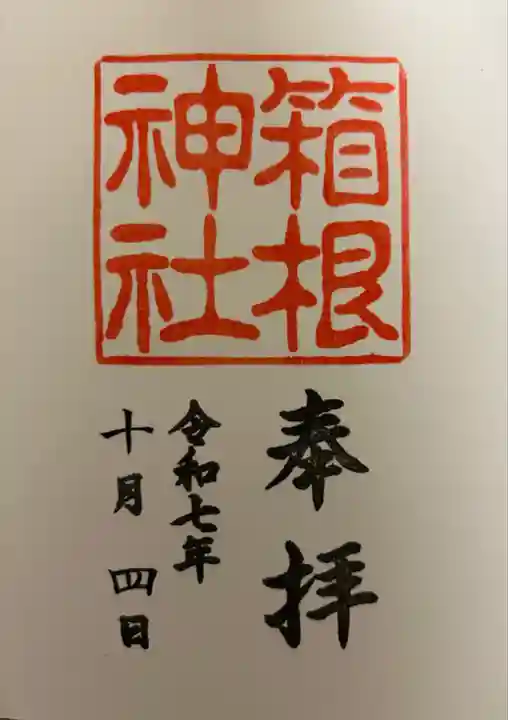 箱根
神社
奉拝
令和七年
十月 四日